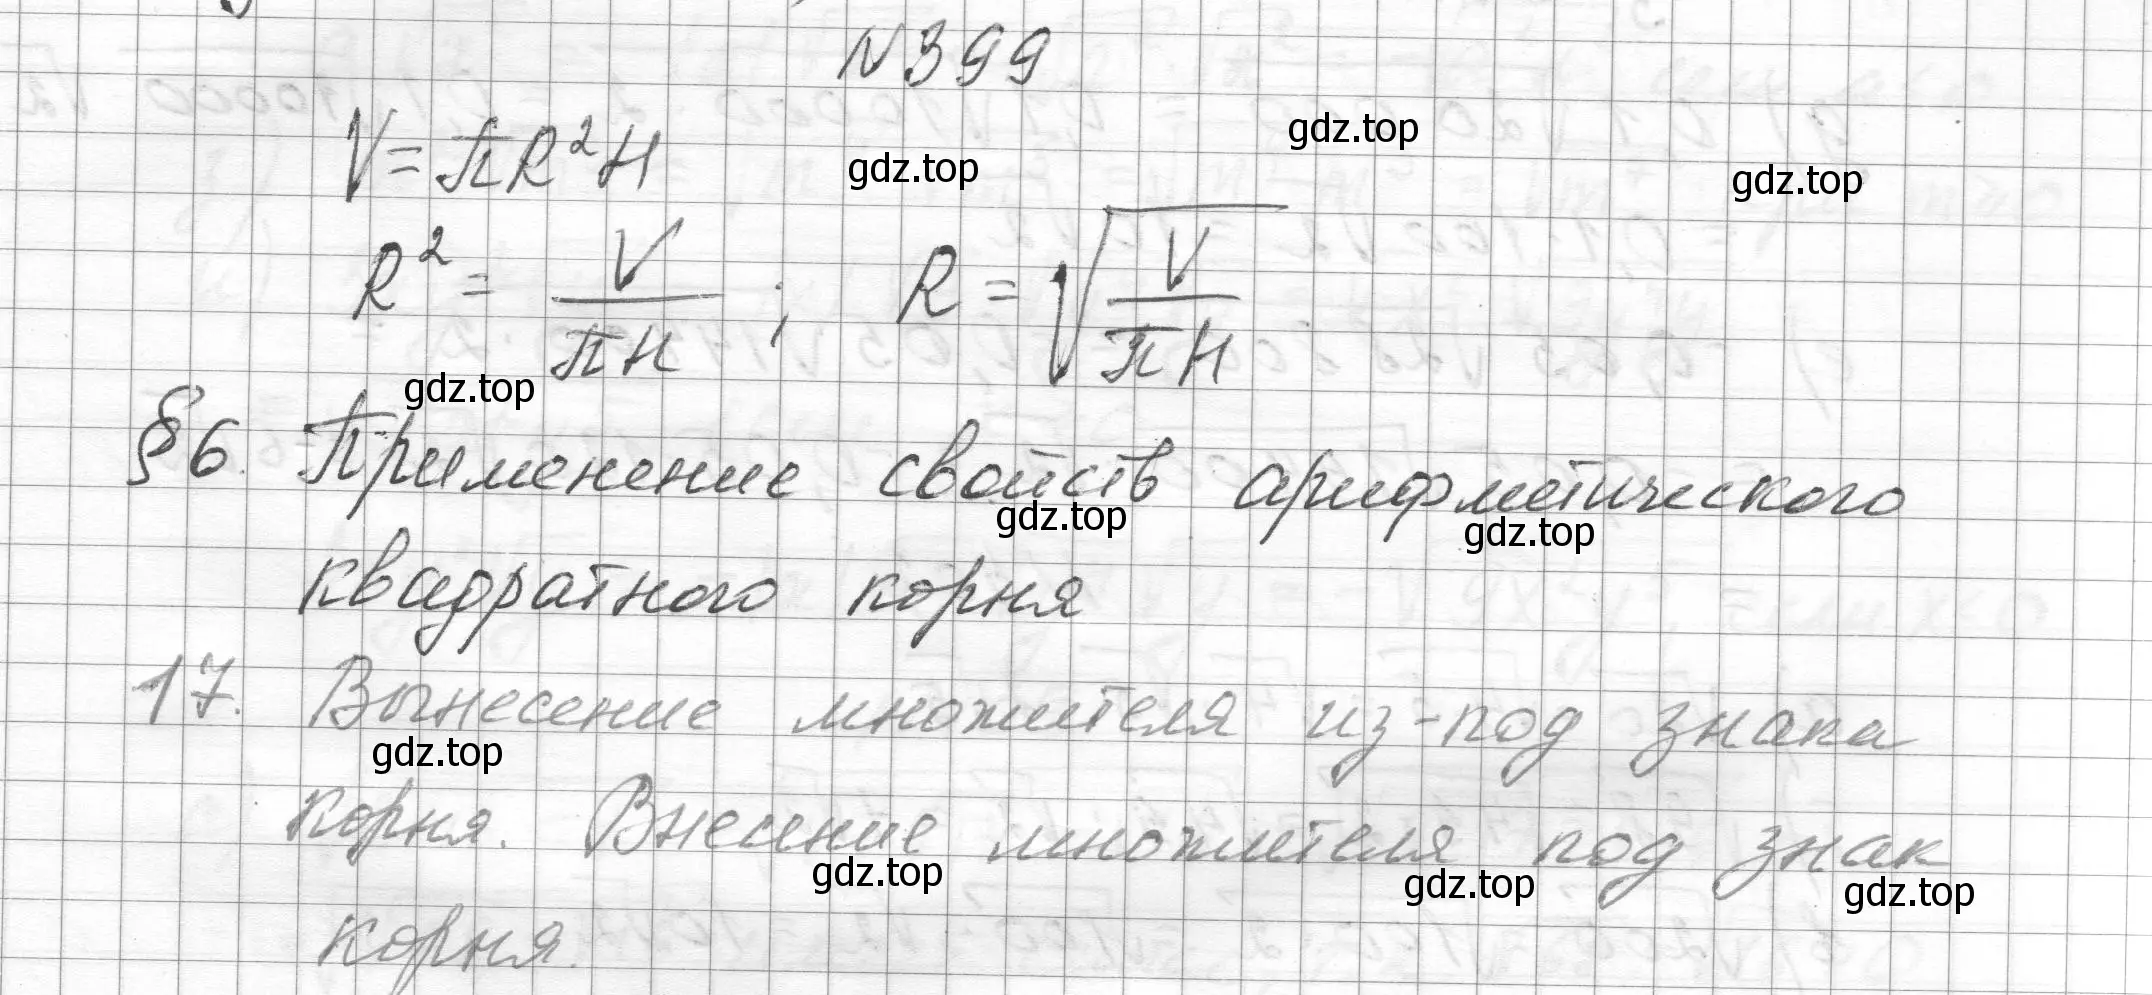 №399
V = πR²H
gdz.top
gdz.top
gdz.top
R² = V/πH ; R = √(V/πH)
gdz.top
§6. Применение свойств арифметического
gdz.top
gdz.top
квадратного корня
17. Вынесение множителя из-под знака
gdz.top
корня. Внесение множителя под знак
gdz.top
gdz.top
gdz.top
корня.